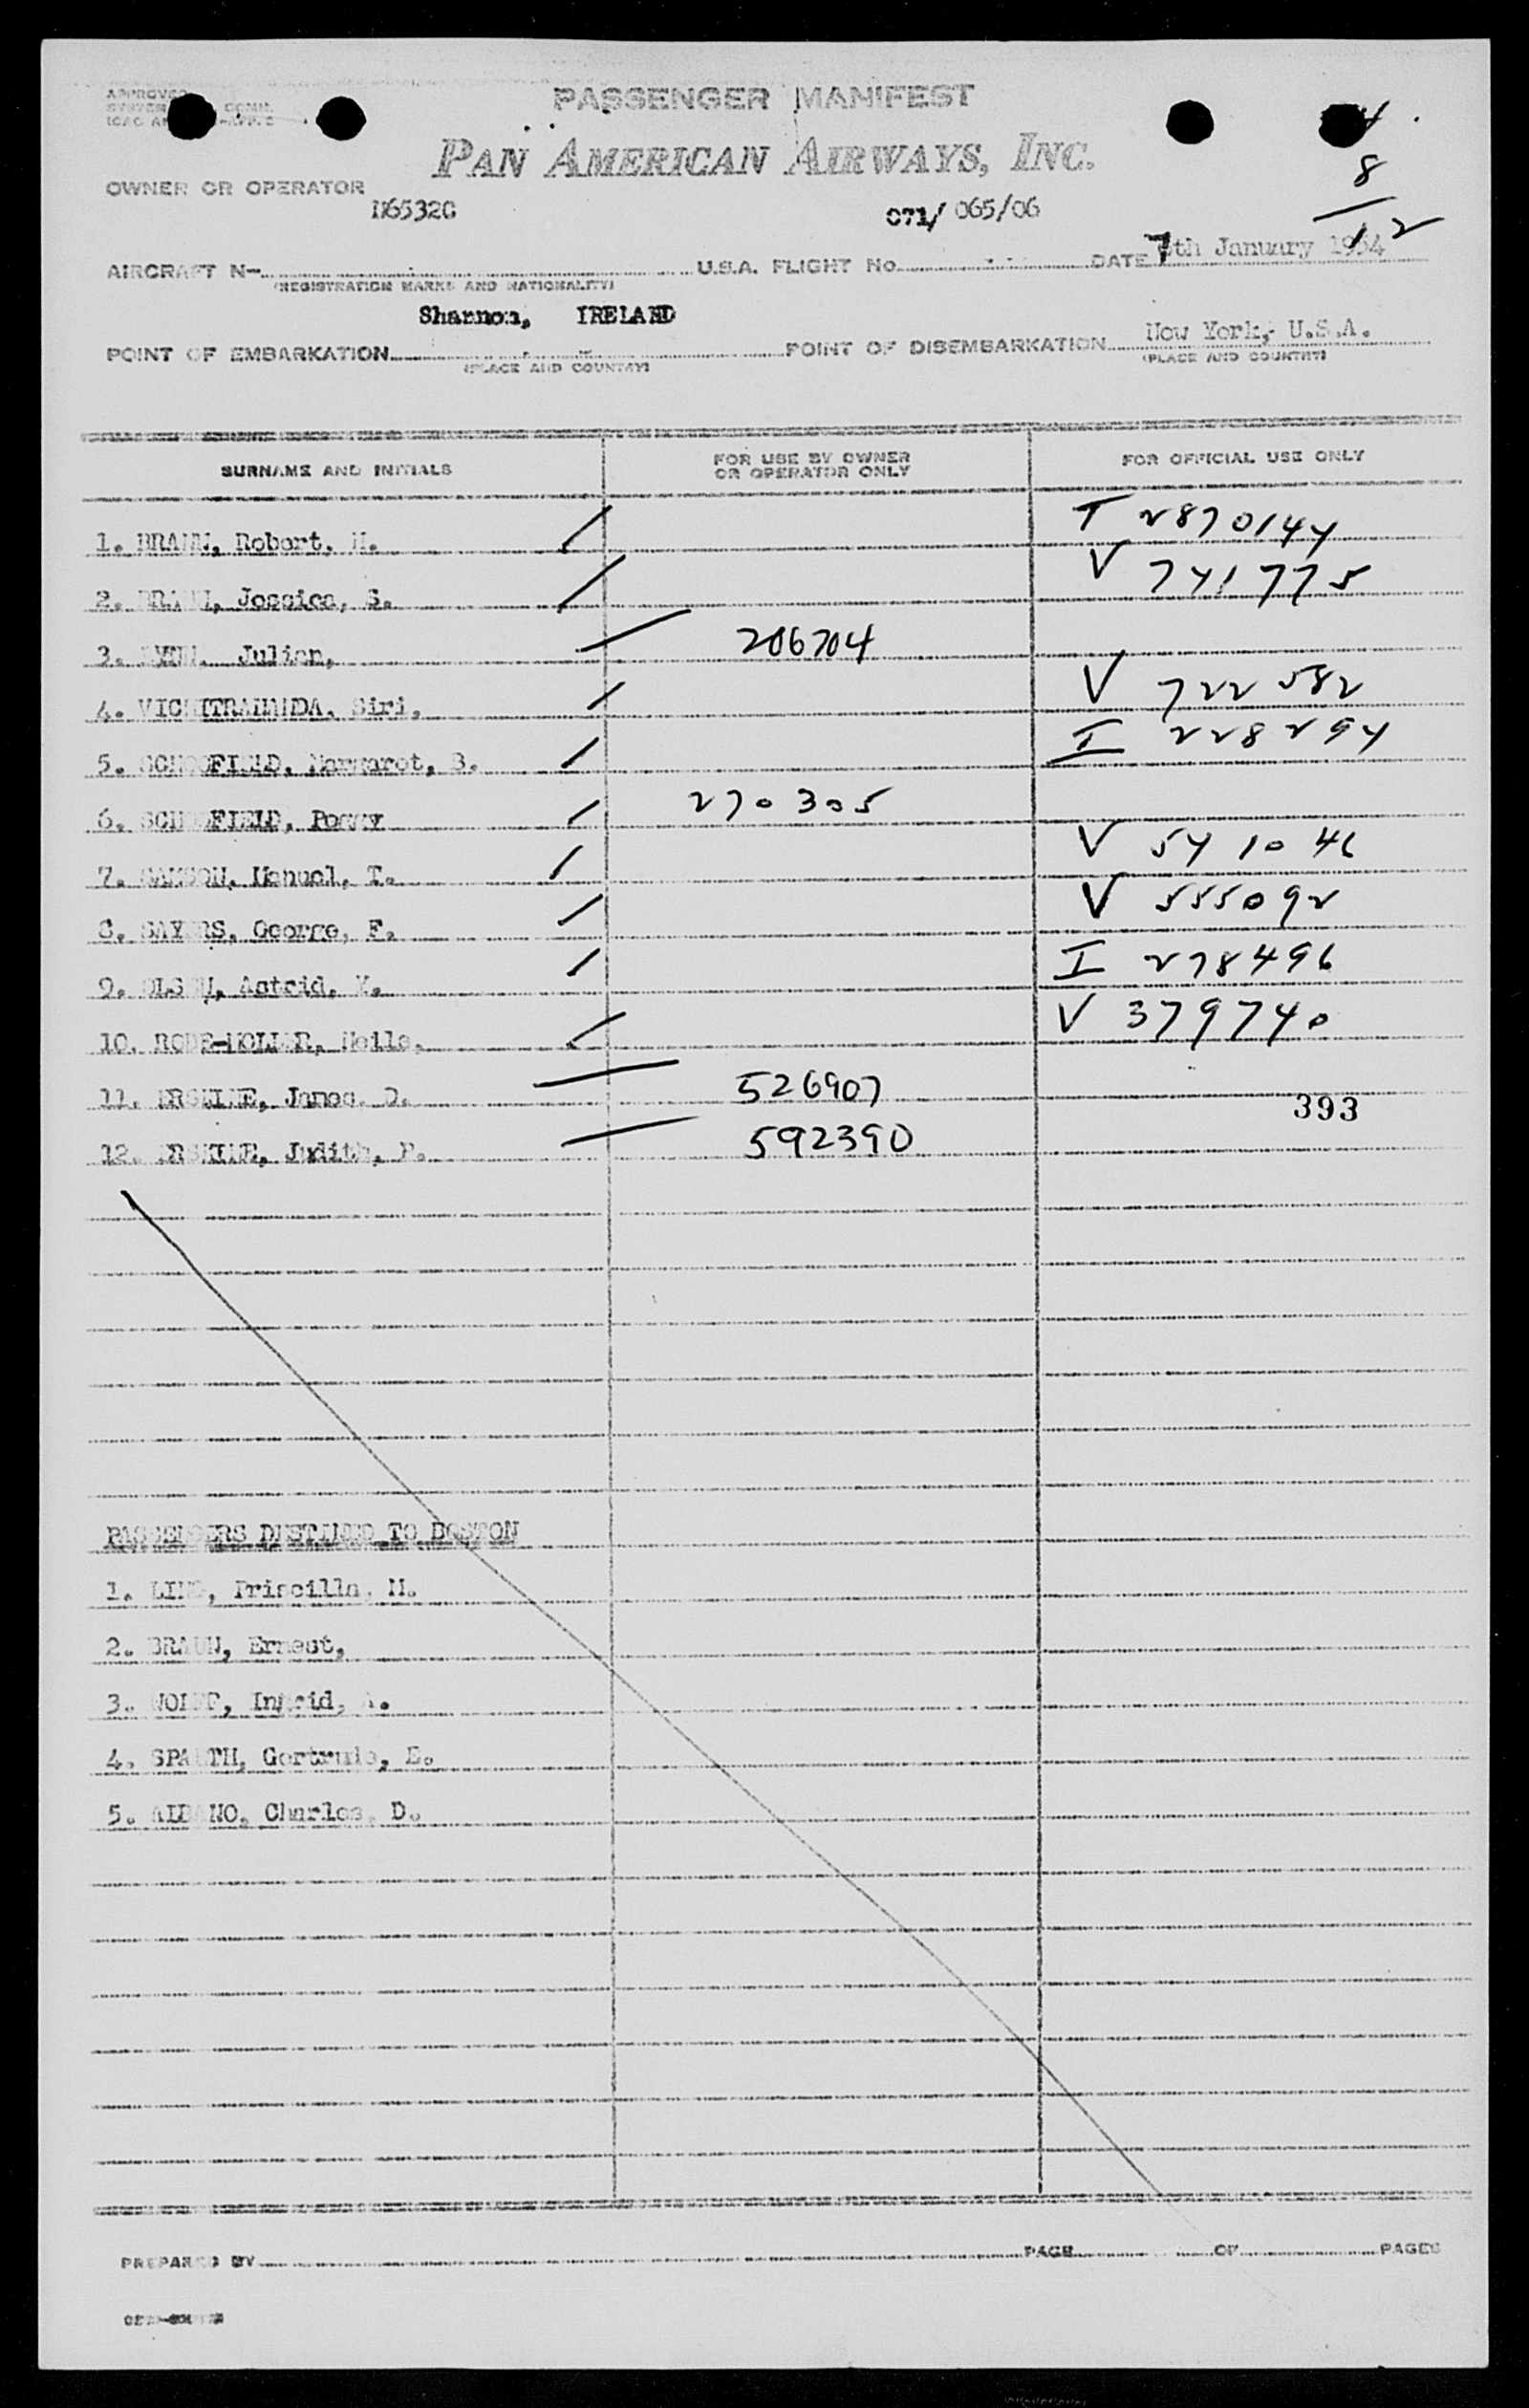 APPROVED
PASSENGER MANIFEST
4
8
12
PAN AMERICAN AIRWAYS, INC.
OWNER OR OPERATOR
N65320 071/ 065/06
AIRCRAFT N- U.S.A. FLIGHT No. DATE 7th January 1954
(REGISTRATION MARKS AND NATIONALITY)
Shannon, IRELAND
POINT OF EMBARKATION POINT OF DISEMBARKATION New York, U.S.A.
(PLACE AND COUNTRY) (PLACE AND COUNTRY)
SURNAME AND INITIALS FOR USE BY OWNER OR OPERATOR ONLY FOR OFFICIAL USE ONLY
1. Robert, I 2870144
2. Jessica, S. V 741775
3. Julian, 206704
4. Siri, V 722582
5. SCHOFIELD, Margaret, B. I 228294
6. SCHOFIELD, Peggy 270305
7. Manuel, T. V 541046
8. SAYERS, George, F. V 555092
9. OLSEN, Astrid, K. I 278496
10. V 379740
11. ERSKINE, James. D. 526907
393
12. ERSKINE, Judith, P. 592390
PASSENGERS DESTINED TO BOSTON
1. Priscilla, M.
2. BRAUN, Ernest,
3. WOLFF, Ingrid,
4. SPAETH, Gertrude, E.
5. ALBANO, Charles, D.
PREPARED BY PAGE OF PAGES